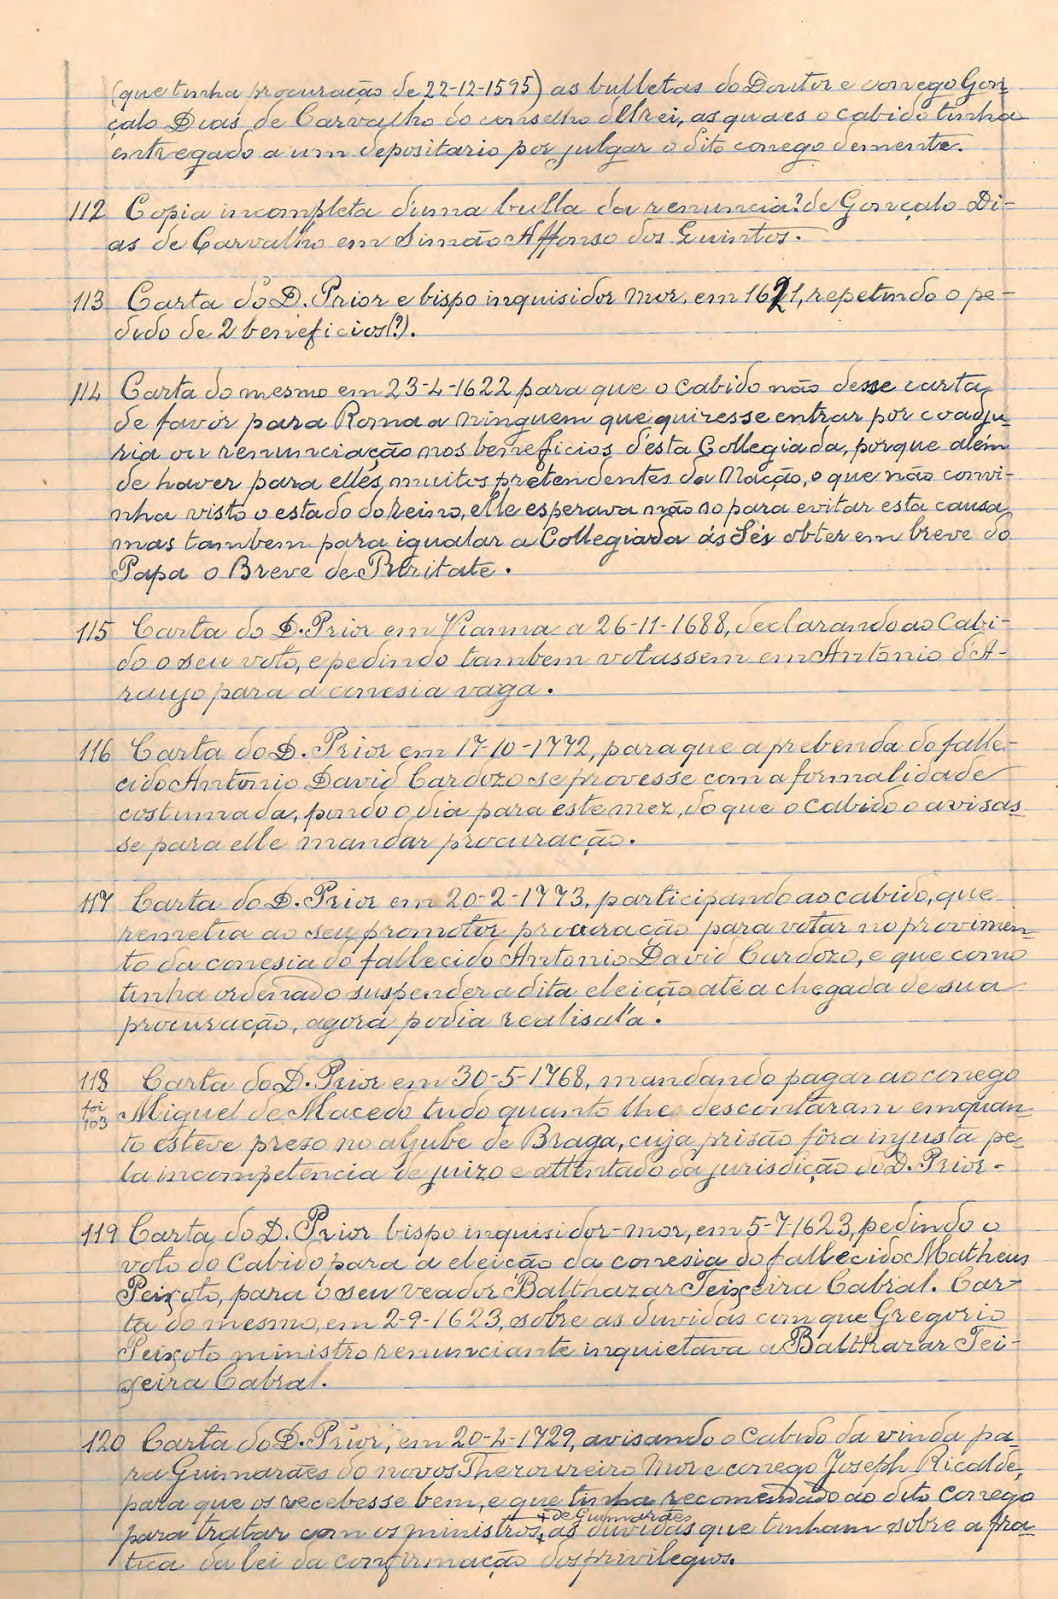 (que tinha procuração de 22-12-1595) as bulletas do Doutor e conego Gon
çalo Dias de Carvalho do conselho d'Elrei, as quaes o cabido tinha
entregado a um depositario por julgar o dito conego demente.
112 Copia incompleta d'uma bulla da renuncia? de Gonçalo Di-
as de Carvalho em Simão Affonso dos Guintos.
113 Carta do D. Prior e bispo inquisidor mor, em 1621, repetindo o pe-
dido de 2 beneficios(?).
114 Carta do mesmo em 23-4-1622 para que o cabido não desse carta
de favor para Roma a ninguem que quizesse entrar por coadju-
ria ou renunciação nos beneficios d'esta Collegiada, porque além
de haver para elles muitos pretendentes da Nação, o que não convi-
nha visto o estado do reino, elle esperava não so para evitar esta causa,
mas tambem para igualar a Collegiada ás Sés obter em breve do
Papa o Breve de Puritate.
115 Carta do D. Prior em Vianna a 26-11-1688, declarando ao Cabi-
do o seu voto, e pedindo tambem votassem em Antonio d'A-
raujo para a conesia vaga.
116 Carta do D. Prior em 17-10-1772, para que a prebenda do falle-
cido Antonio David Cardozo se provesse com a formalidade
costumada, pondo o dia para este mez, do que o cabido o avisas
se para elle mandar procuração.
117 Carta do D. Prior em 20-2-1773, participando ao cabido, que
remetia ao seu promotor procuração para votar no provimen-
to da conesia do fallecido Antonio David Cardozo, e que como
tinha ordenado suspender a dita eleição até a chegada de sua
procuração, agora podia realisal'a.
118 Carta do D. Prior em 30-5-1768, mandando pagar ao conego
foi
103
Miguel de Macedo tudo quanto lhe descontaram emquan-
to esteve preso no aljube de Braga, cuja prisão fôra injusta pe-
la incompetencia de juizo e attentado da jurisdição do D. Prior.
119 Carta do D. Prior bispo inquisidor-mor, em 5-7-1623, pedindo o
voto do Cabido para a eleição da conesia do fallecido Matheus
Peixoto, para o seu veador Balthazar Teixeira Cabral. Car-
ta do mesmo, em 2-9-1623, sobre as duvidas com que Gregorio
Peixoto ministro renunciante inquietava a Balthazar Tei-
xeira Cabral.
120 Carta do D. Prior, em 20-4-1729, avisando o Cabido da vinda pa-
ra Guimarães do novos Thezoureiro Mor e conego Joseph Ricalde,
para que os recebesse bem, e que tinha recomendado ao dito conego
+ de Guimarães
para tratar com os ministros + as duvidas que tinham sobre a pra-
tica da lei da confirmação dos privilegios.